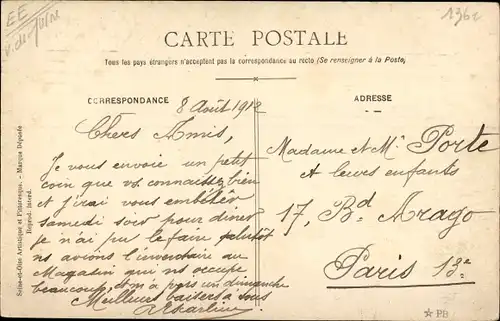 EE
1361
CARTE POSTALE
Tous les pays étrangers n'acceptent pas la correspondance au recto (Se renseigner à la Poste)
CORRESPONDANCE
ADRESSE
8 Août 1912
Chers Amis,
Je vous envoie un petit
coin que vs connaissez bien
et j'irai vous embêter
samedi soir pour diner
je n'ai pu le faire plutôt
ns avions l'inventaire au
Magasin qui ns occupe
beaucoup, et à vous un dimanche
Meilleurs baisers à tous
Madame et Mr Porte
et leurs enfants
17, Bd Arago
Paris 13e
Seine-et-Oise Artistique et Pittoresque. - Marque Déposée
Reprod. interd.
PB